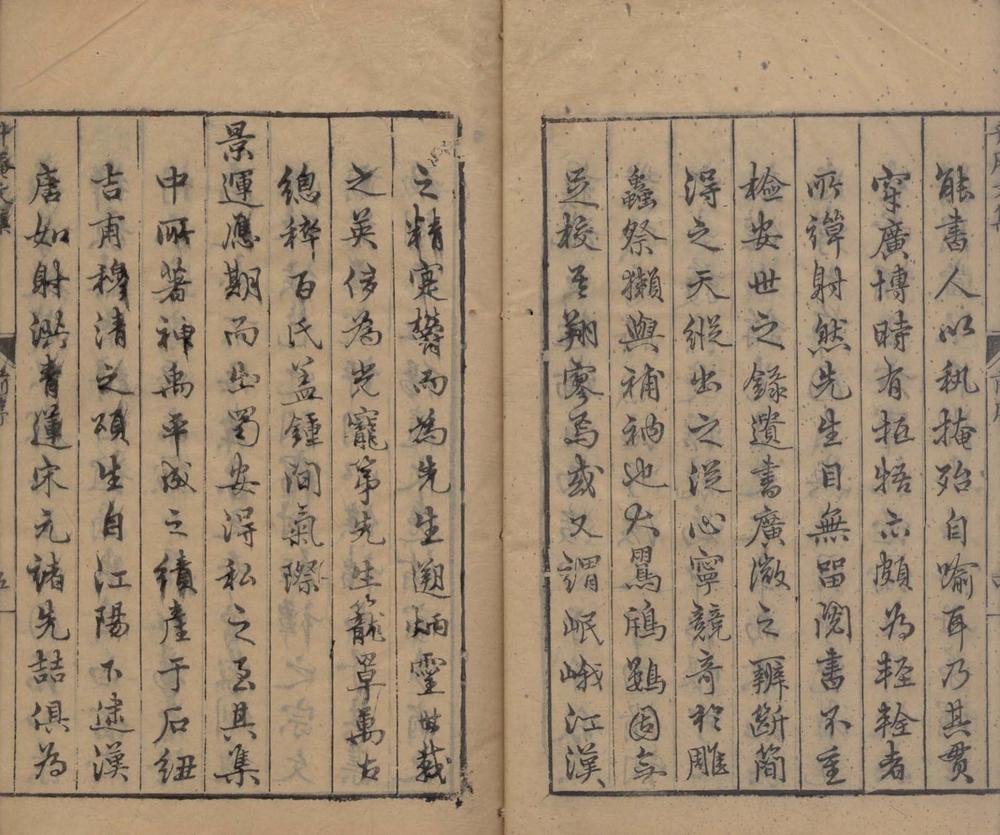 能書人以執掩殆自喻耳乃其貫
穿廣博時有拒牾亦頗為輕輇者
所彈射然先生目無留閱書不重
檢安世之錄遺書廣微之辨斷簡
得之天縱出之從心寧競奇於雕
蟲祭獺與補衲也大鵾鴟鷃固
足挍其翔寥焉或又謂岷峨江漢
之精寔欝而為先生遡炳靈世載
之英侈為光寵第先生籠罩萬古
總稡百氏盖鍾間氣際
景運應期而出蜀安得私之至其集
中所著神禹平成之績產于石紐
吉甫穆清之頌生自江陽下逮漢
唐如射洪青蓮宋元諸先喆俱為